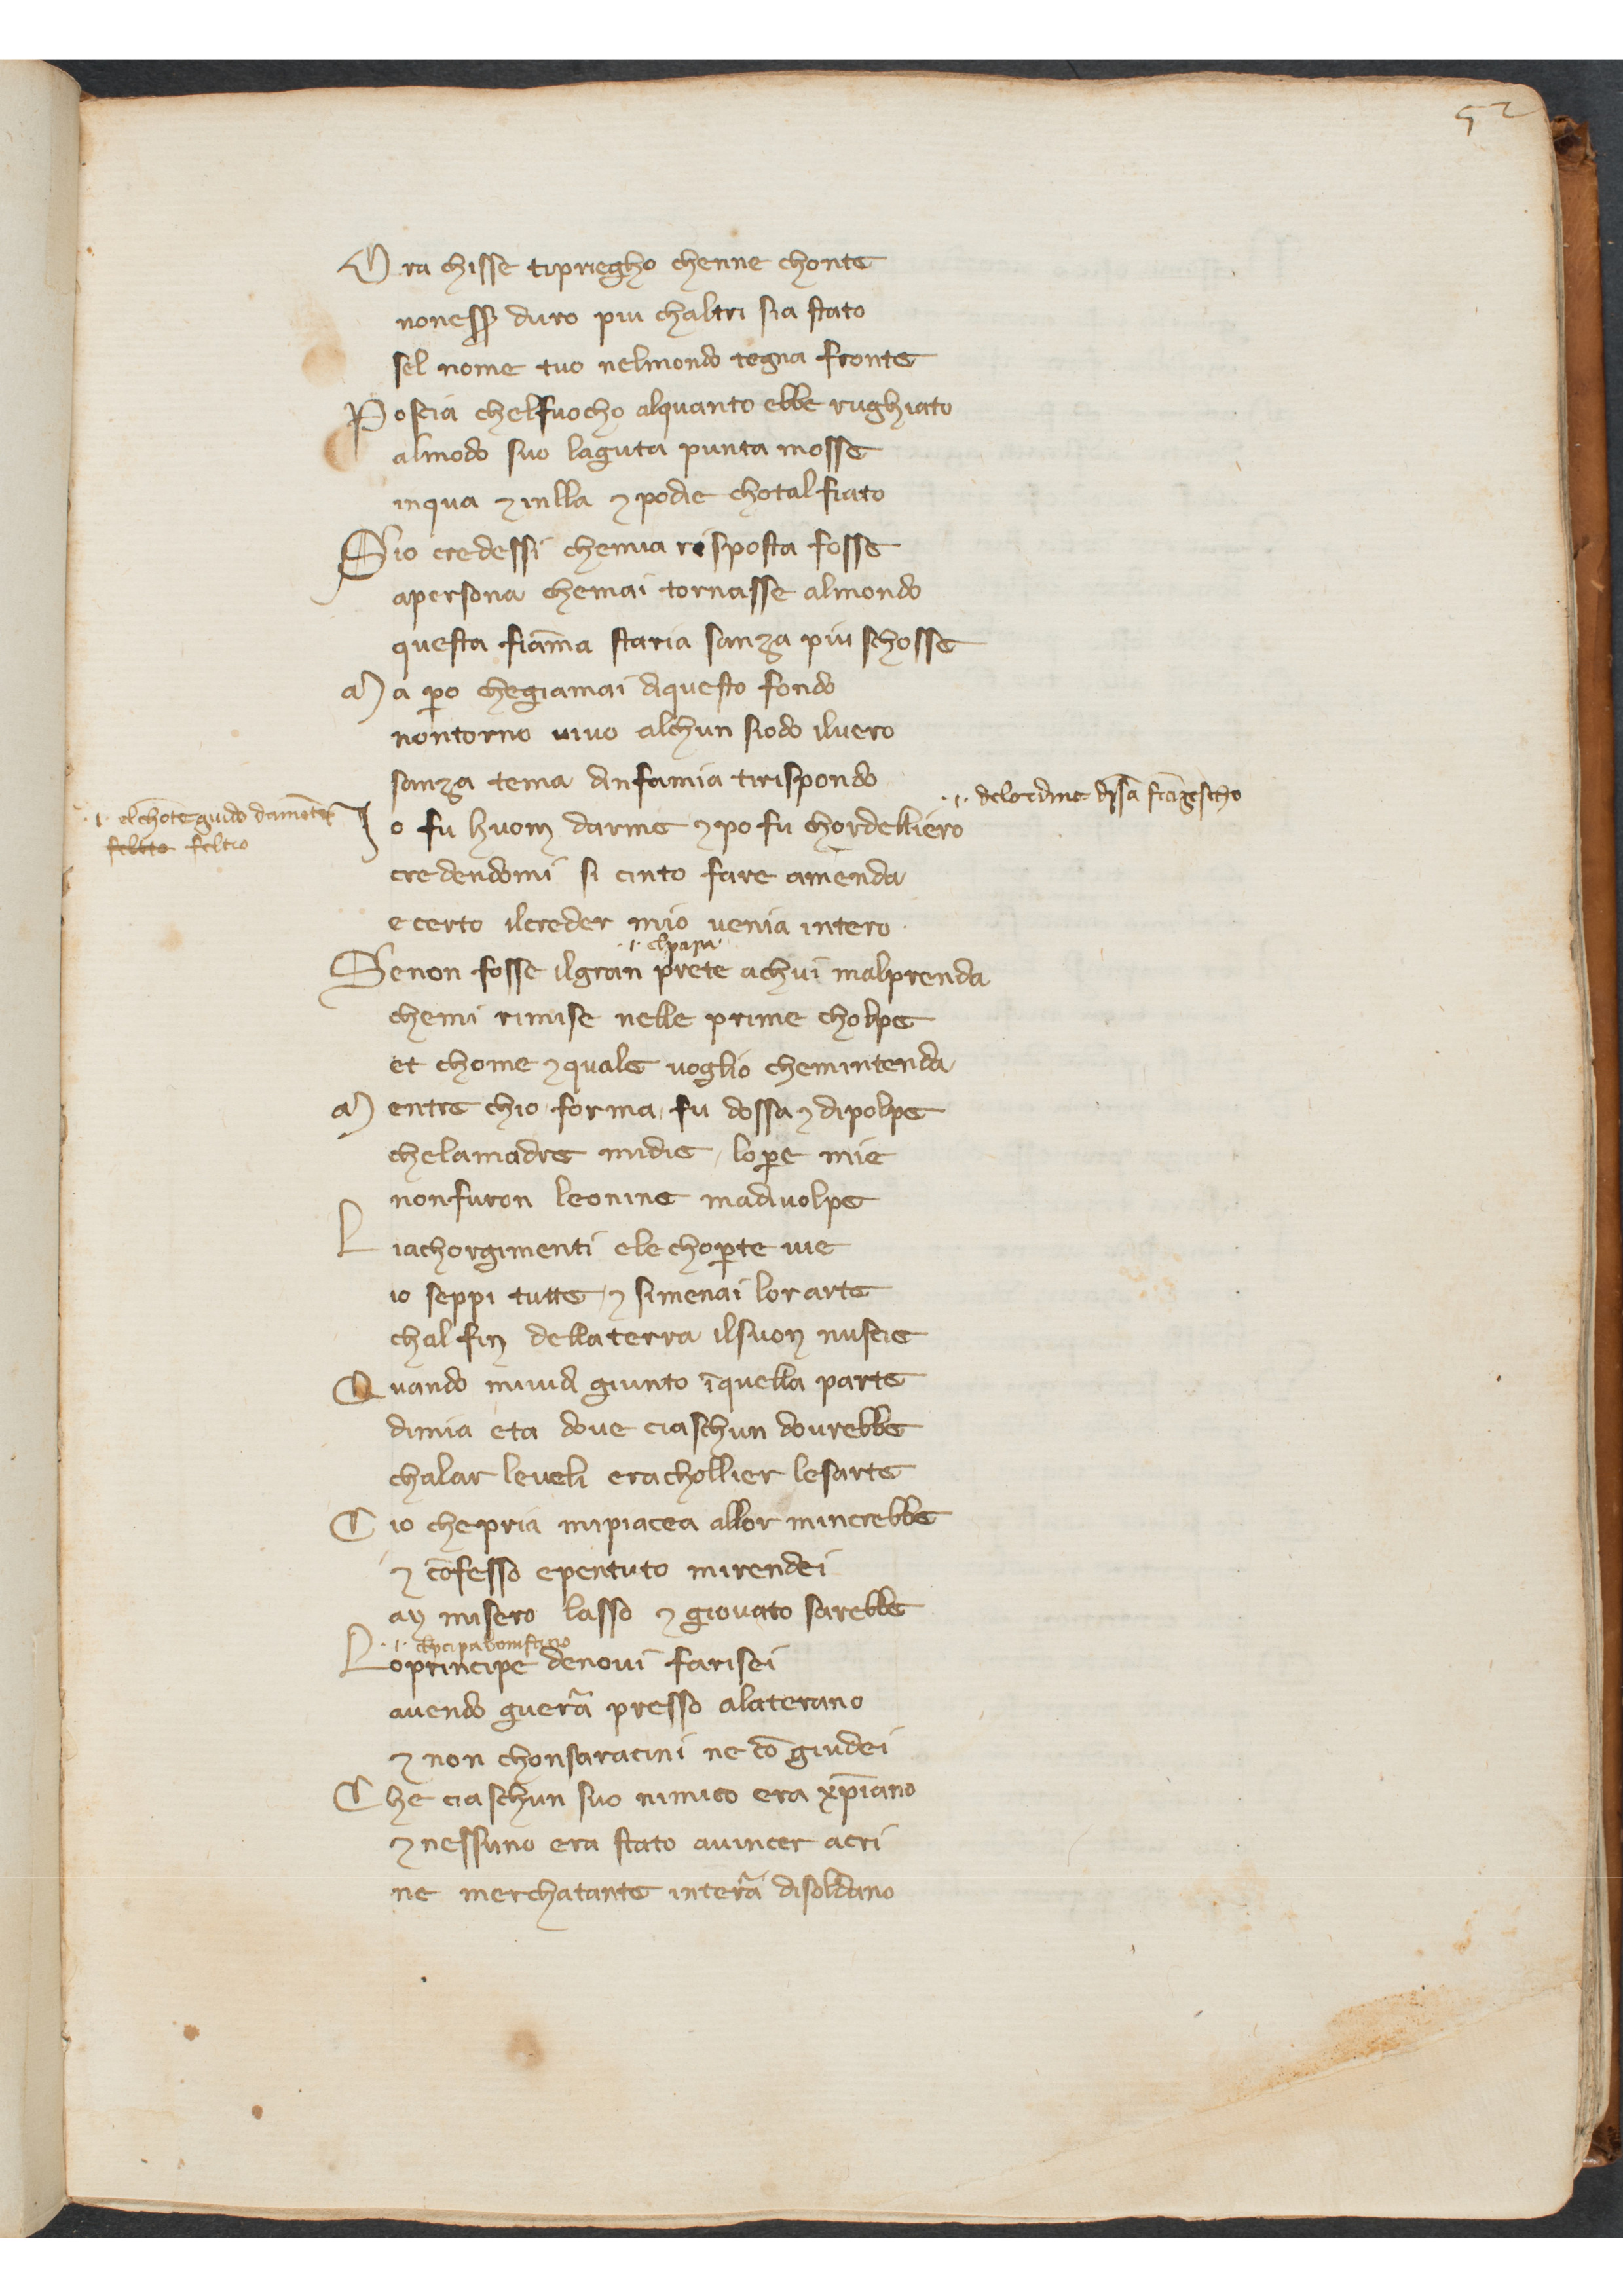 52
Ora chisse tipriegho chenne chonte
nonesser duro piu chaltri sia stato
sel nome tuo nelmondo tegna fronte
Poscia chelfuocho alquanto ebbe rughiato
almodo suo laguta punta mosse
inqua ⁊ inlla ⁊ podie chotal fiato
Sio credessi chemia risposta fosse
apersona chemai tornasse almondo
questa fiam̄a staria sanza piu schosse
Ma ꝑo chegiamai diquesto fondo
nontorno vivo alchun siodo iluero
sanza tema dinfamia tirispondo
.ı. delordine dissā frāgescho
.ı. elchōte guido damōte
feltro feltro
Io fu huom darme ⁊ po fu chordelliero
credendomi si cinto fare amenda
e certo ilcreder mio uenia intero
.ı. elpapa
Senon fosse ilgran prete achui malprenda
chemi rimise nelle prime cholpe
et chome ⁊ quale uoglio chemintenda
Mentre chio forma fu dossa ⁊ dipolpe
chelamadre midie loꝑe mie
nonfuron leonine madiuolpe
Liachorgimenti ele choꝑte uie
io seppi tutte ⁊ simenai lor arte
chal fin dellaterra ilsuon nuscie
Quando miuidi giunto ī quella parte
dimia eta doue ciaschun dourebbe
chalar leueli erachollier lesarte
Cio chepria mipiacea allor mincrebbe
⁊ cōfesso epentuto mirendei
ay misero lasso ⁊ giouato sarebbe
Loprincipe denoui farisei
auendo guerā presso alaterano
⁊ non chonsaracini ne cō giudei
Che ciaschun suo nimico era xp̄iano
⁊ nessuno era stato auincer acri
ne merchatante interā disoldano